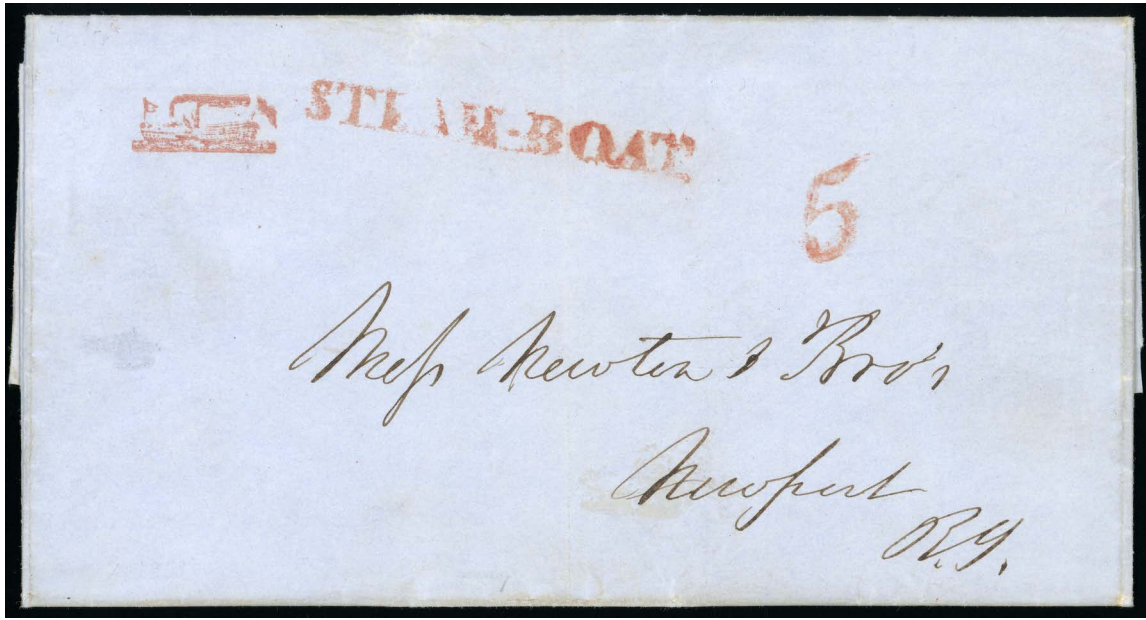 STEAM-BOAT
5
Mess Newton & Bro's
Newport
R.I.